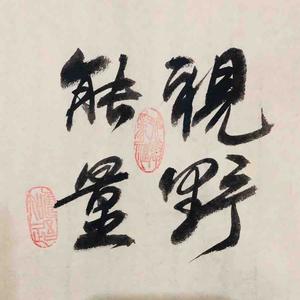 視野
能量